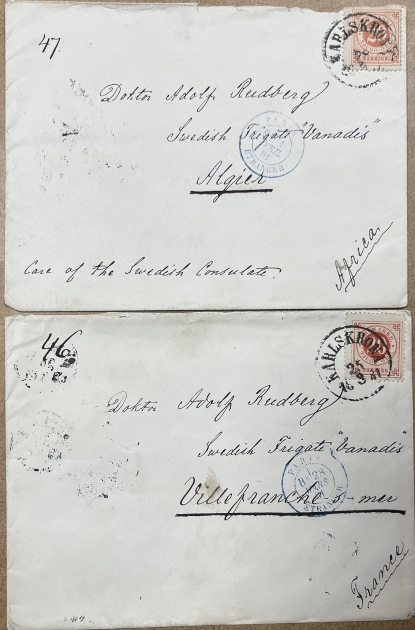 47.
KARLSKRONA
Doktor Adolf Rudberg
Swedish Frigate "Vanadis"
PARIS
ETRANGER
Algier
Africa
Care of the Swedish Consulate.
46
KARLSKRONA
25
Doktor Adolf Rudberg
Swedish Frigate "Vanadis"
PARIS
28
ETRANGER
Villefranche s. mer
France